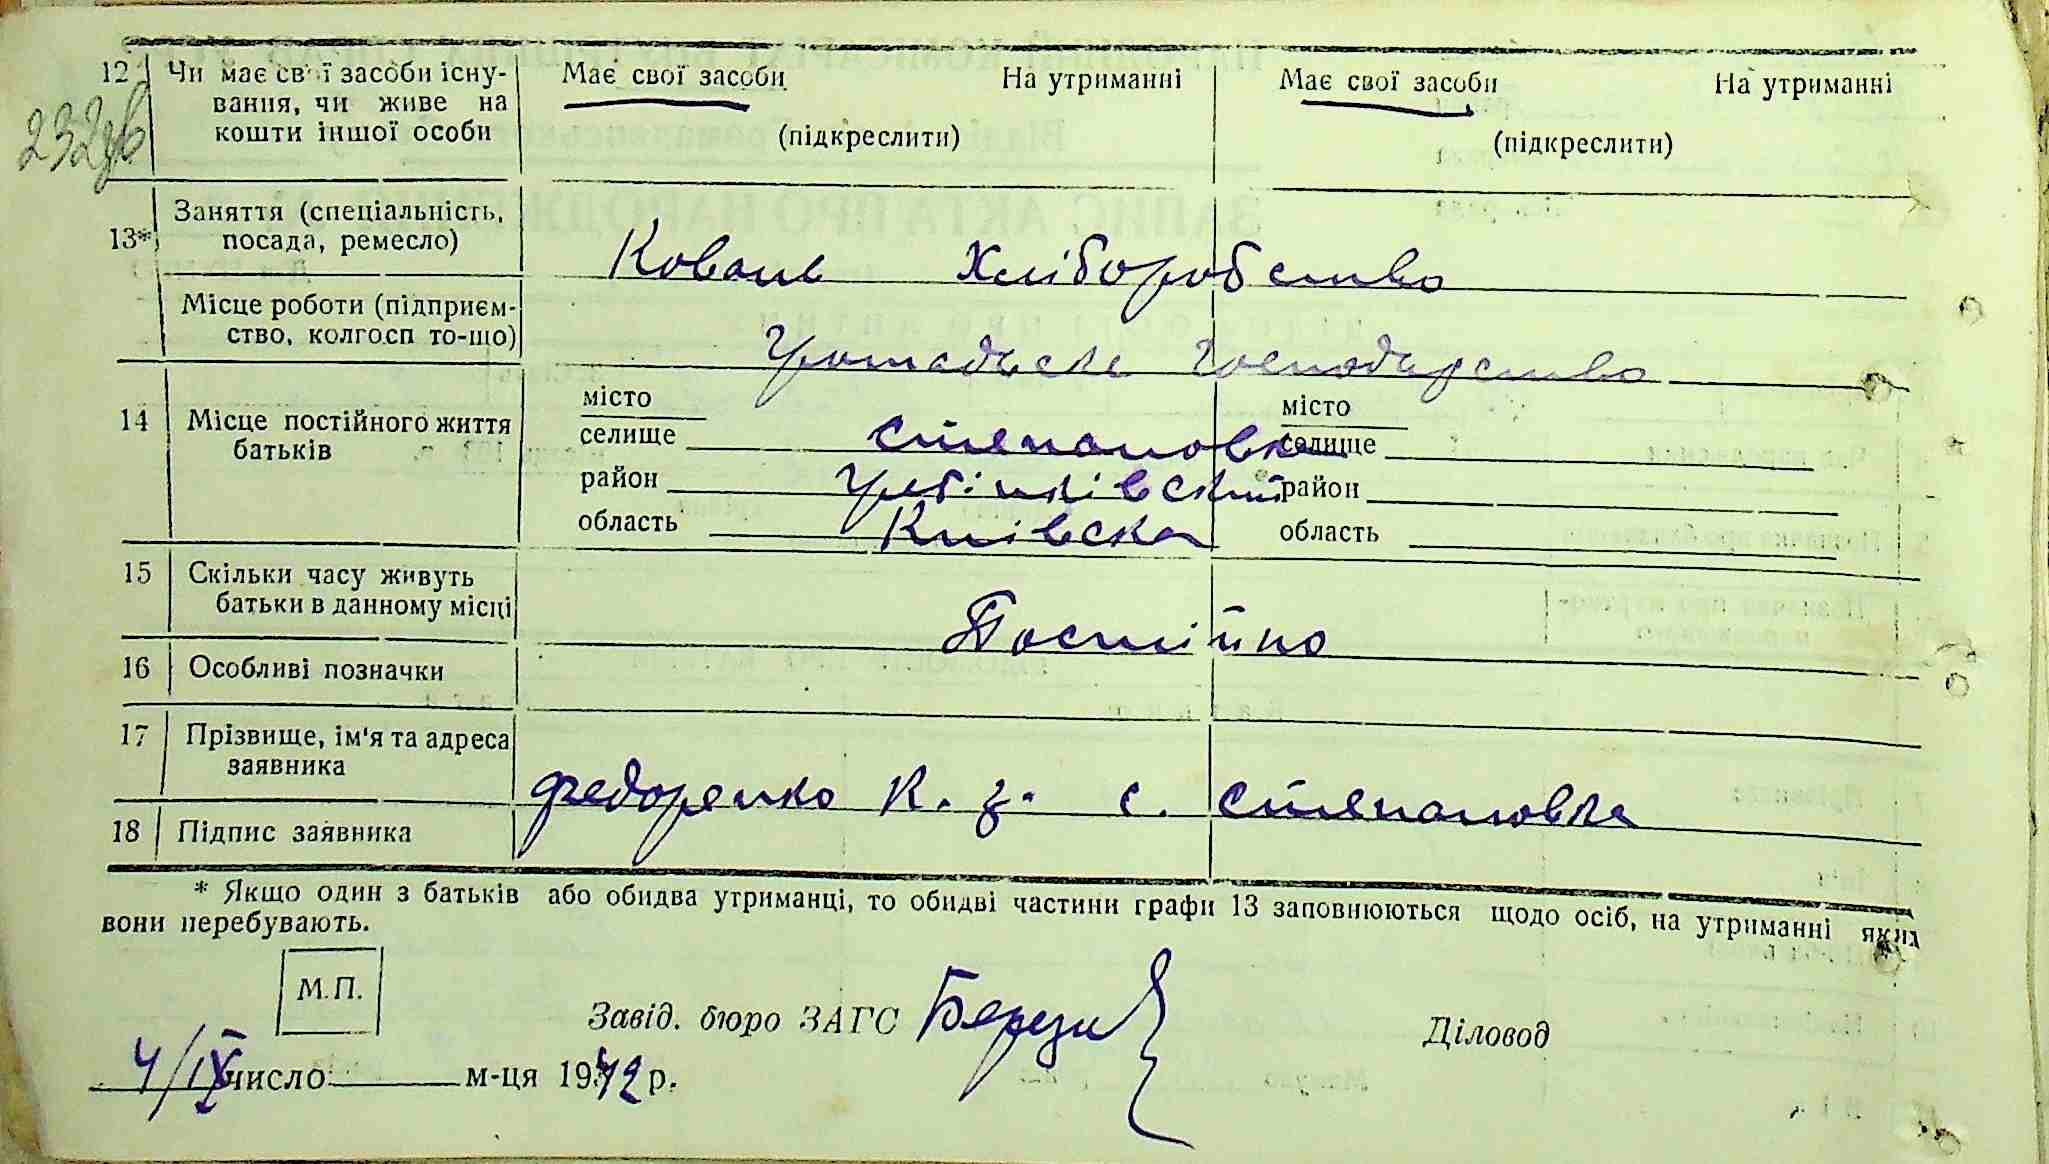 12 Чи має свої засоби існу- Має свої засоби На утриманні Має свої засоби На утриманні
вання, чи живе на
кошти іншої особи (підкреслити) (підкреслити)
232зв
13* Заняття (спеціальність,
посада, ремесло) Коваль Хліборобство
Місце роботи (підприєм-
ство, колгосп то-що) Громадське Господарство
14 Місце постійного життя
батьків
місто місто
селище Степановка селище
район Гребінківский район
область Київска область
15 Скільки часу живуть
батьки в данному місці Постійно
16 Особливі позначки
17 Прізвище, ім'я та адреса
заявника Федоренко К. З. с. Степановка
18 Підпис заявника
* Якщо один з батьків або обидва утриманці, то обидві частини графи 13 заповнюються щодо осіб, на утриманні яких
вони перебувають.
М.П.
Завід. бюро ЗАГС Діловод
4/IX число м-ця 1942 р.